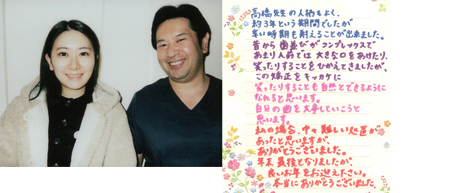 高橋先生の人柄もよく、
約3年という期間でしたが
辛い時期も耐えることが出来ました。
昔から歯並びがコンプレックスで
あまり人前では大きな口をあけたり、
笑ったりすることをひかえてきましたが、
この矯正をキッカケに
笑ったりすることも自然とできるように
なれると思います。
自分の歯を大事にしていこうと
思います。
私の場合、中々難しい処置が
あったと思いますが、
ありがとうございました。
年末最後となりましたが、
良いお年をお迎え下さい。
本当にありがとうございました